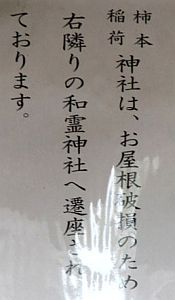 柿本
稲荷 神社は、お屋根破損のため
右隣りの和霊神社へ遷座され
ております。